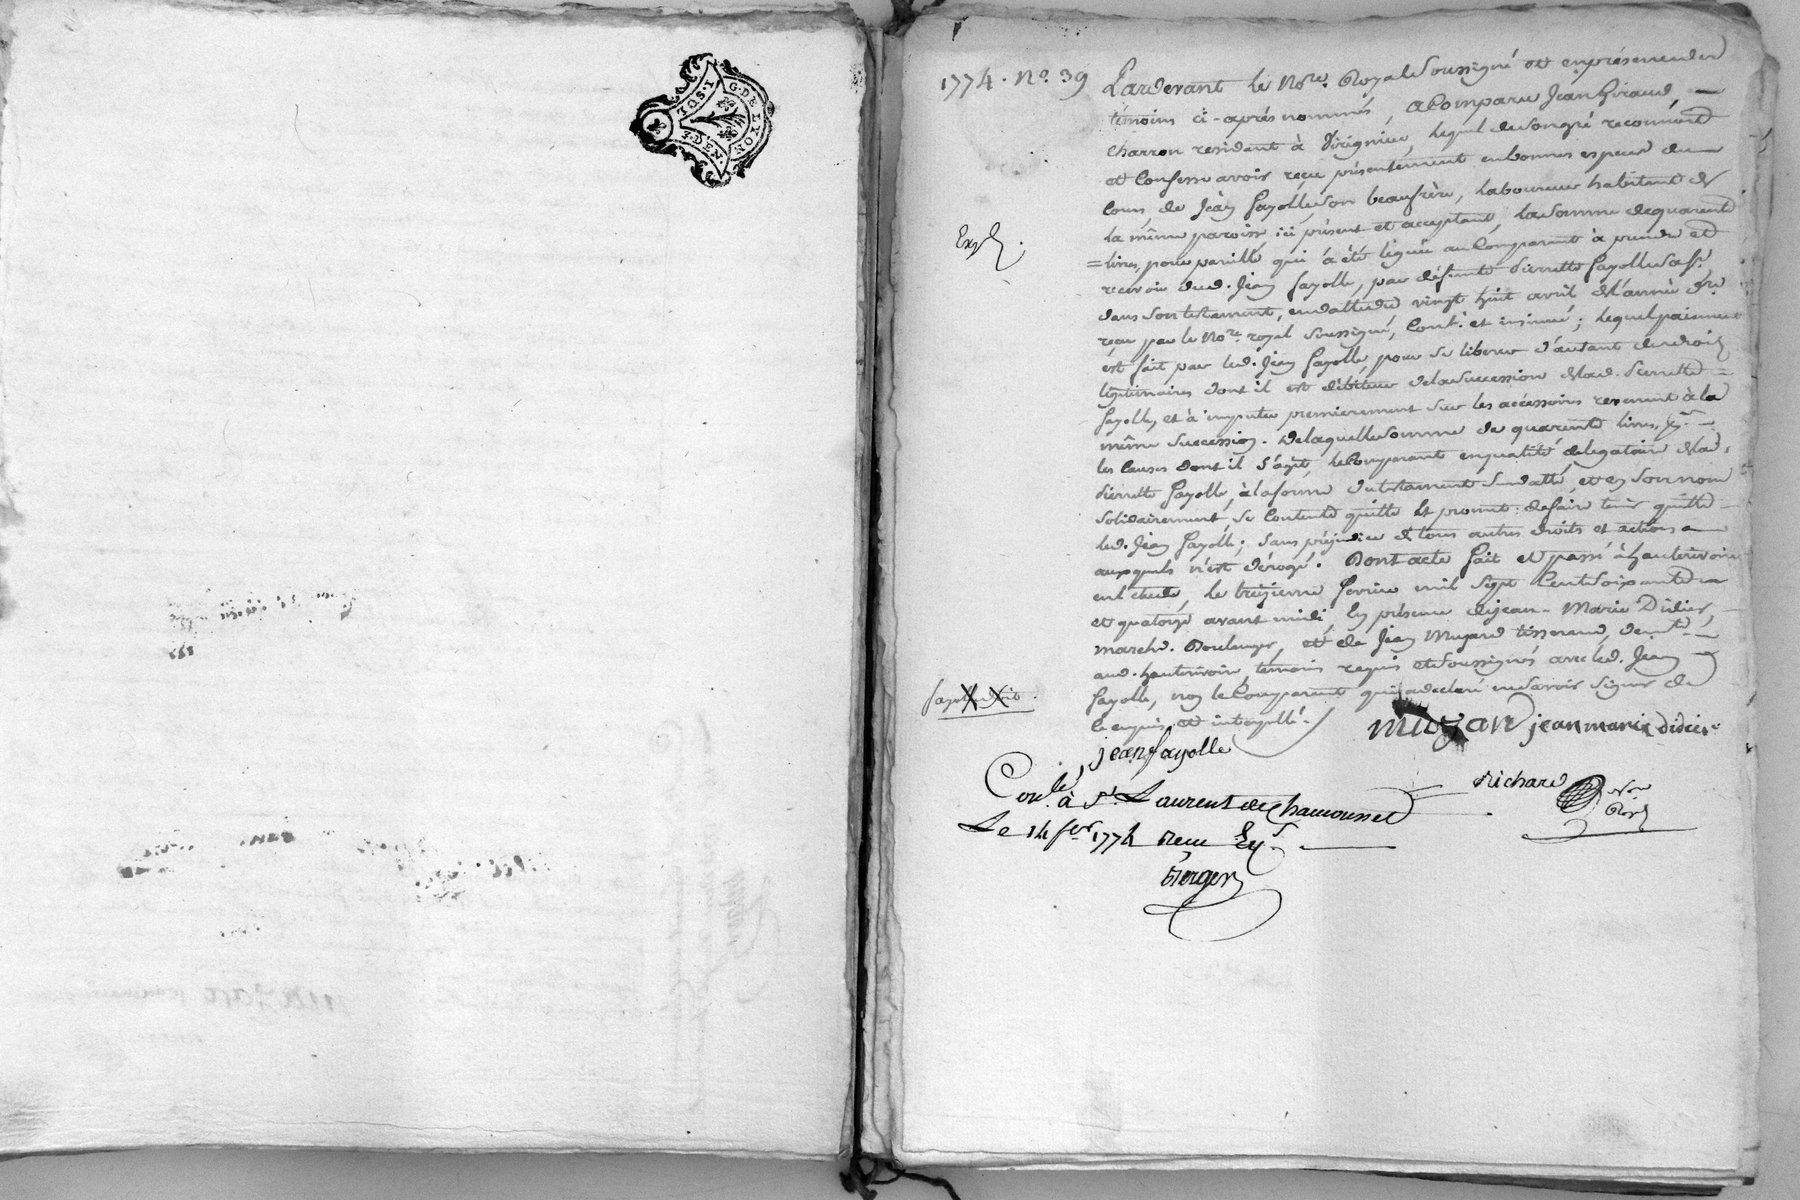 I·SDE
6·DEN
G·DE LYON
1774. No. 39
Pardevant le Nore. Royal Soussigné et en présence des
témoins ci-après nommés, a Comparu Jean Giraud,
charron résidant à Virignieu, lequel de son gré reconnoit
et Confesse avoir reçu présentement en bonnes espèces du
Cours, de Jean fayolle, son beaufrère, laboureur habitant de
Exp.
la même paroisse ici présent et acceptant, la somme de quarente
livres, pour pareille qui a été léguée au Comparant à prendre et
recevoir dud. Jean fayolle, par défunte Pierrette fayolle sa fe.
dans son testament, en datte du vingt huit avril de l'année dre.
reçu par le Nore. royal Soussigné, Cont. et insinué; lequel paiement
est fait par led. Jean fayolle, pour se liberer d'autant des droits
légitimaires dont il est débiteur de la Succession de lad. Pierrette
fayolle, et à imputer premierement sur les accessoires revenant à la
même Succession. De laquelle somme de quarente livres, pr.
les Causes dont il s'agit, le Comparant en qualité de légataire de lad.
Pierrette fayolle, à la forme du testament Sus datté, et en son nom
solidairement, se Contente quitte et promet de faire tenir quitte
led. Jean fayolle; Sans préjudice de tous autres droits et actions
auxquels n'est dérogé. Dont acte fait et passé à hauterivoire
en l'étude, le treizieme fevrier mil Sept Cent Soixante
et quatorze avant midi, En présence de Jean-Marie Didier,
marchd. Boulanger, et de Jean Muzard tisserand, demt.
aud. hauterivoire, témoins requis et Soussignés avec led. Jean
fayolle, non le Comparant qui a declaré ne savoir signer de
ce enquis et interpellé.
muzan jean marie didier
jean fayolle
Richard Nore Roy.
Conlé. à St. Laurent de Chamousset
Le 14 fer. 1774 Recu
Berger